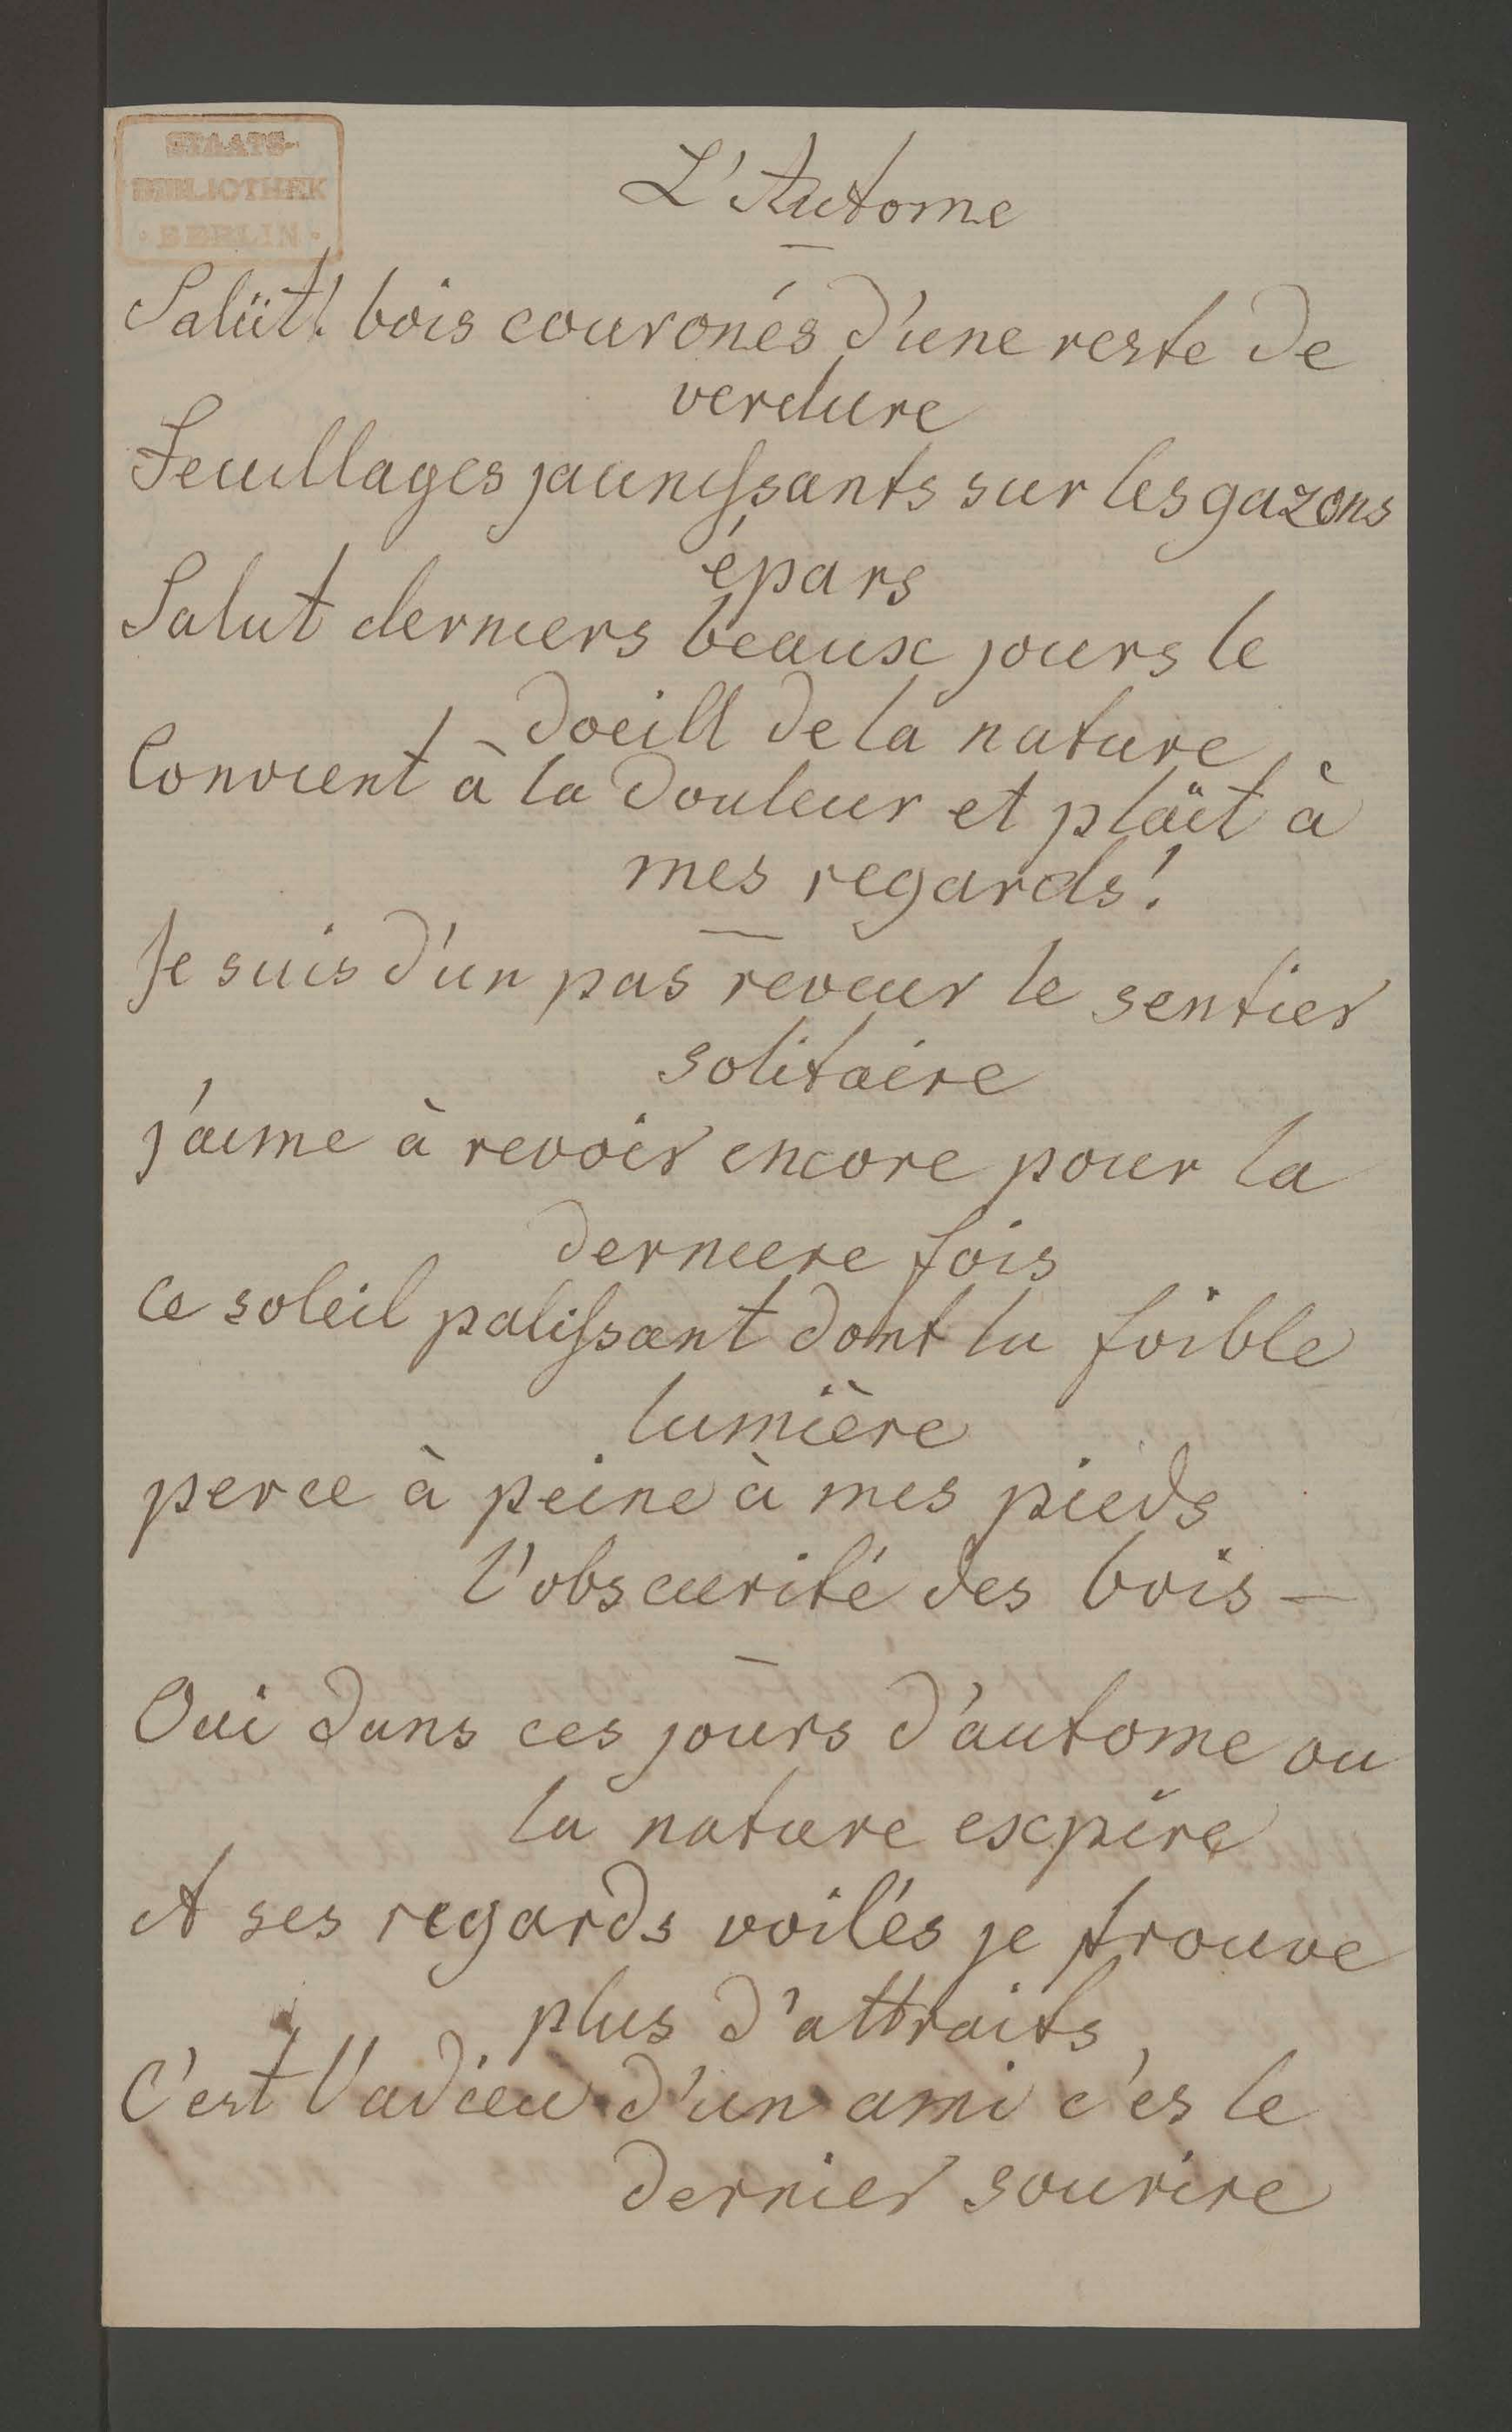 STAATS-
BIBLIOTHEK
· BERLIN ·
L'Autome
Salüt! bois couronés d'une reste de
verdure
Feuillages jaunissants sur les gazons
épars
Salut derniers beaux jours le
doeill de la nature
Convient à la douleur et pläit à
mes regards!
Je suis d'un pas reveur le sentier
solitaire
j'aime à revoir encore pour la
derniere fois
ce soleil palissant dont la foible
lumière
perce à peine à mes pieds
l'obscurité des bois –
Oui dans ces jours d'autome ou
la nature expire
A ses regards voilés je trouve
plus d'attraits,
C'est l'adieu d'un ami c'es le
dernier sourire